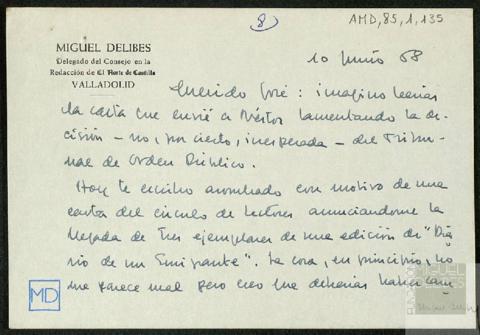 8)
AMD,85,1,135
MIGUEL DELIBES
Delegado del Consejo en la
Redacción de El Norte de Castilla
VALLADOLID
10 junio 68
Querido José: imagino leerías
la carta que envié a Néstor lamentando la de-
cisión - no, por cierto, inesperada - del Tribu-
nal de Orden Público.
Hoy te escribo asombrado con motivo de una
carta del círculo de Lectores anunciándome la
llegada de tres ejemplares de una edición de "Dia-
rio de un Emigrante". La cosa, en principio, no
me parece mal pero creo que deberías haber
MD
FUNDACIÓN
MIGUEL
DELIBES